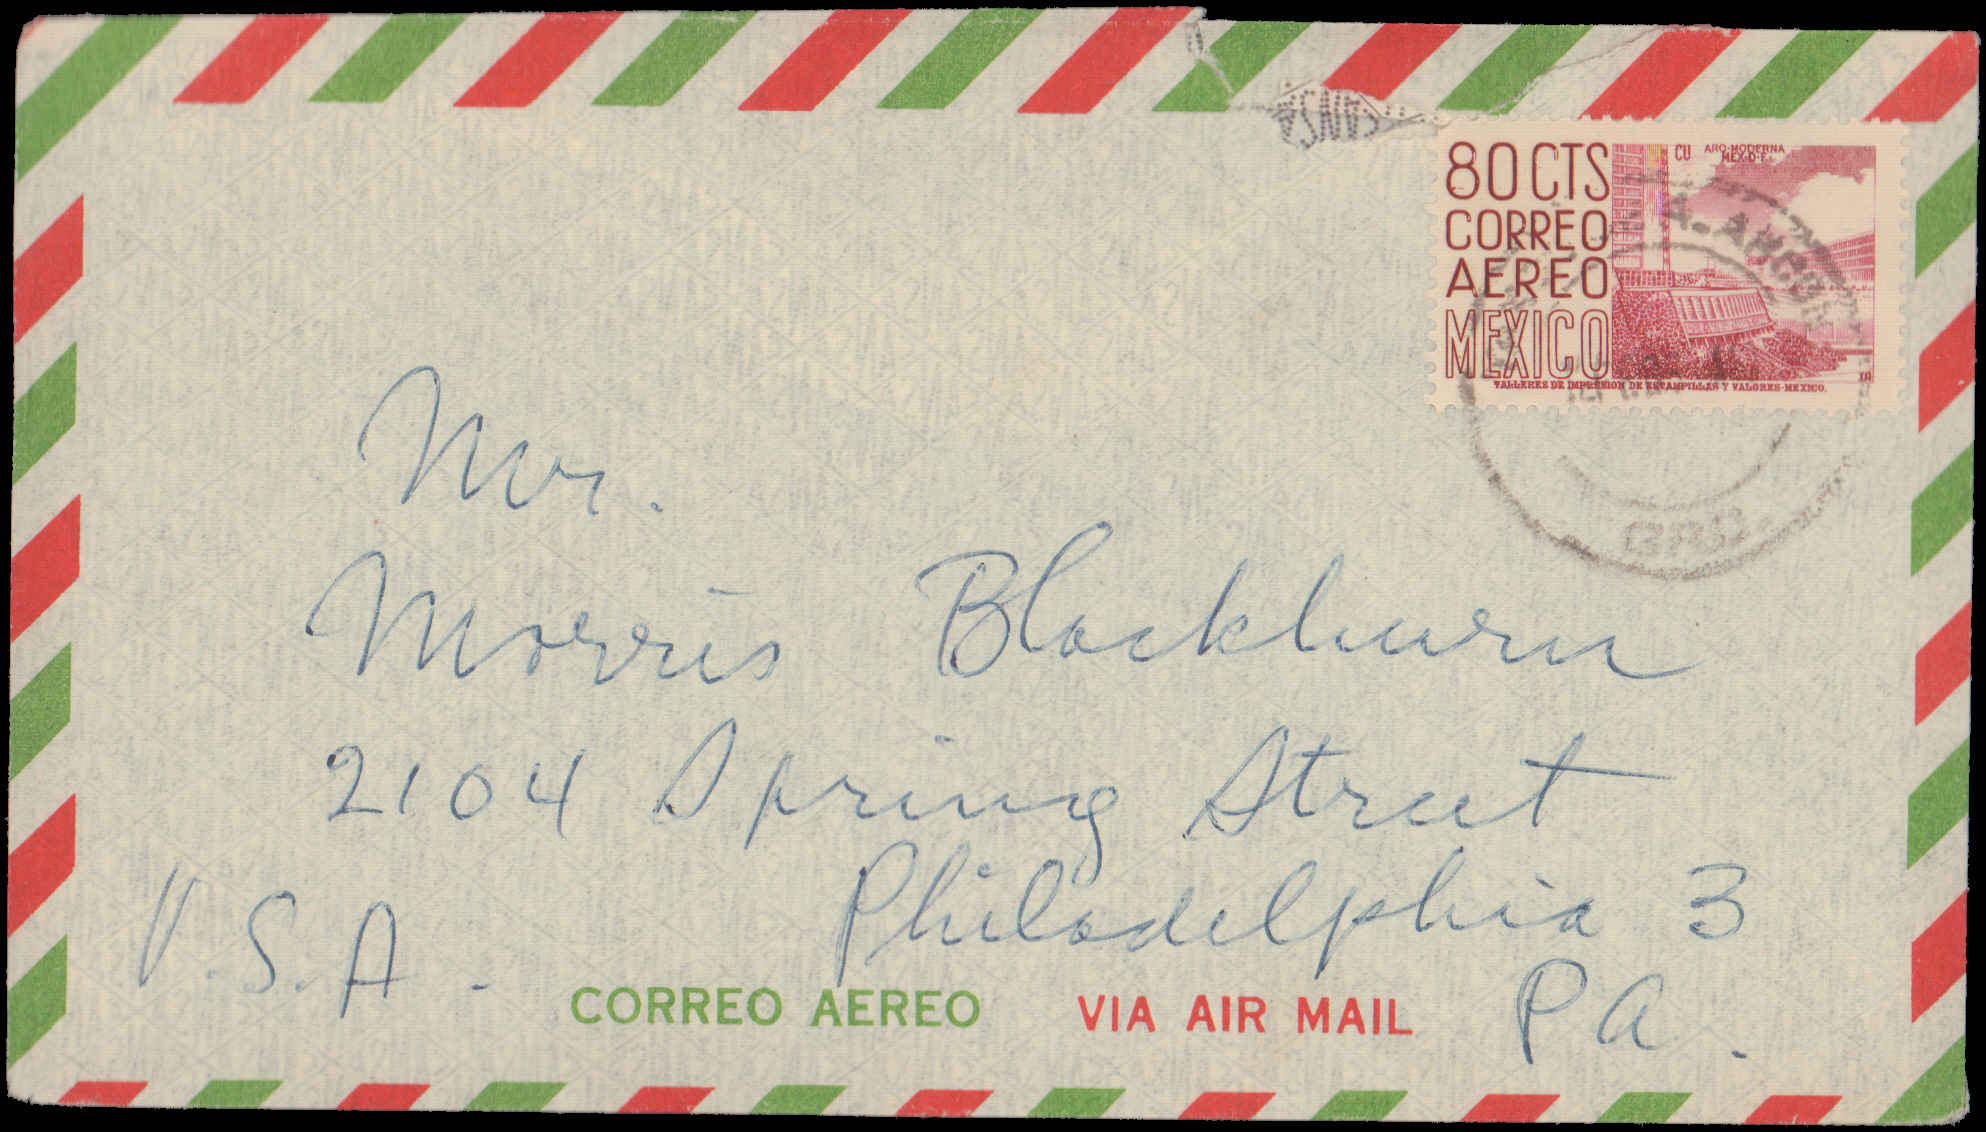 80 CTS
CORREO
AEREO
MEXICO
CU ARQ-MODERNA
MEX-D-F-
TALLERES DE IMPRESION DE ESTAMPILLAS Y VALORES-MEXICO.
GRO.
Mr.
Morris Blackburn
2104 Spring Street
Philadelphia 3
U.S.A.
PA.
CORREO AEREO VIA AIR MAIL